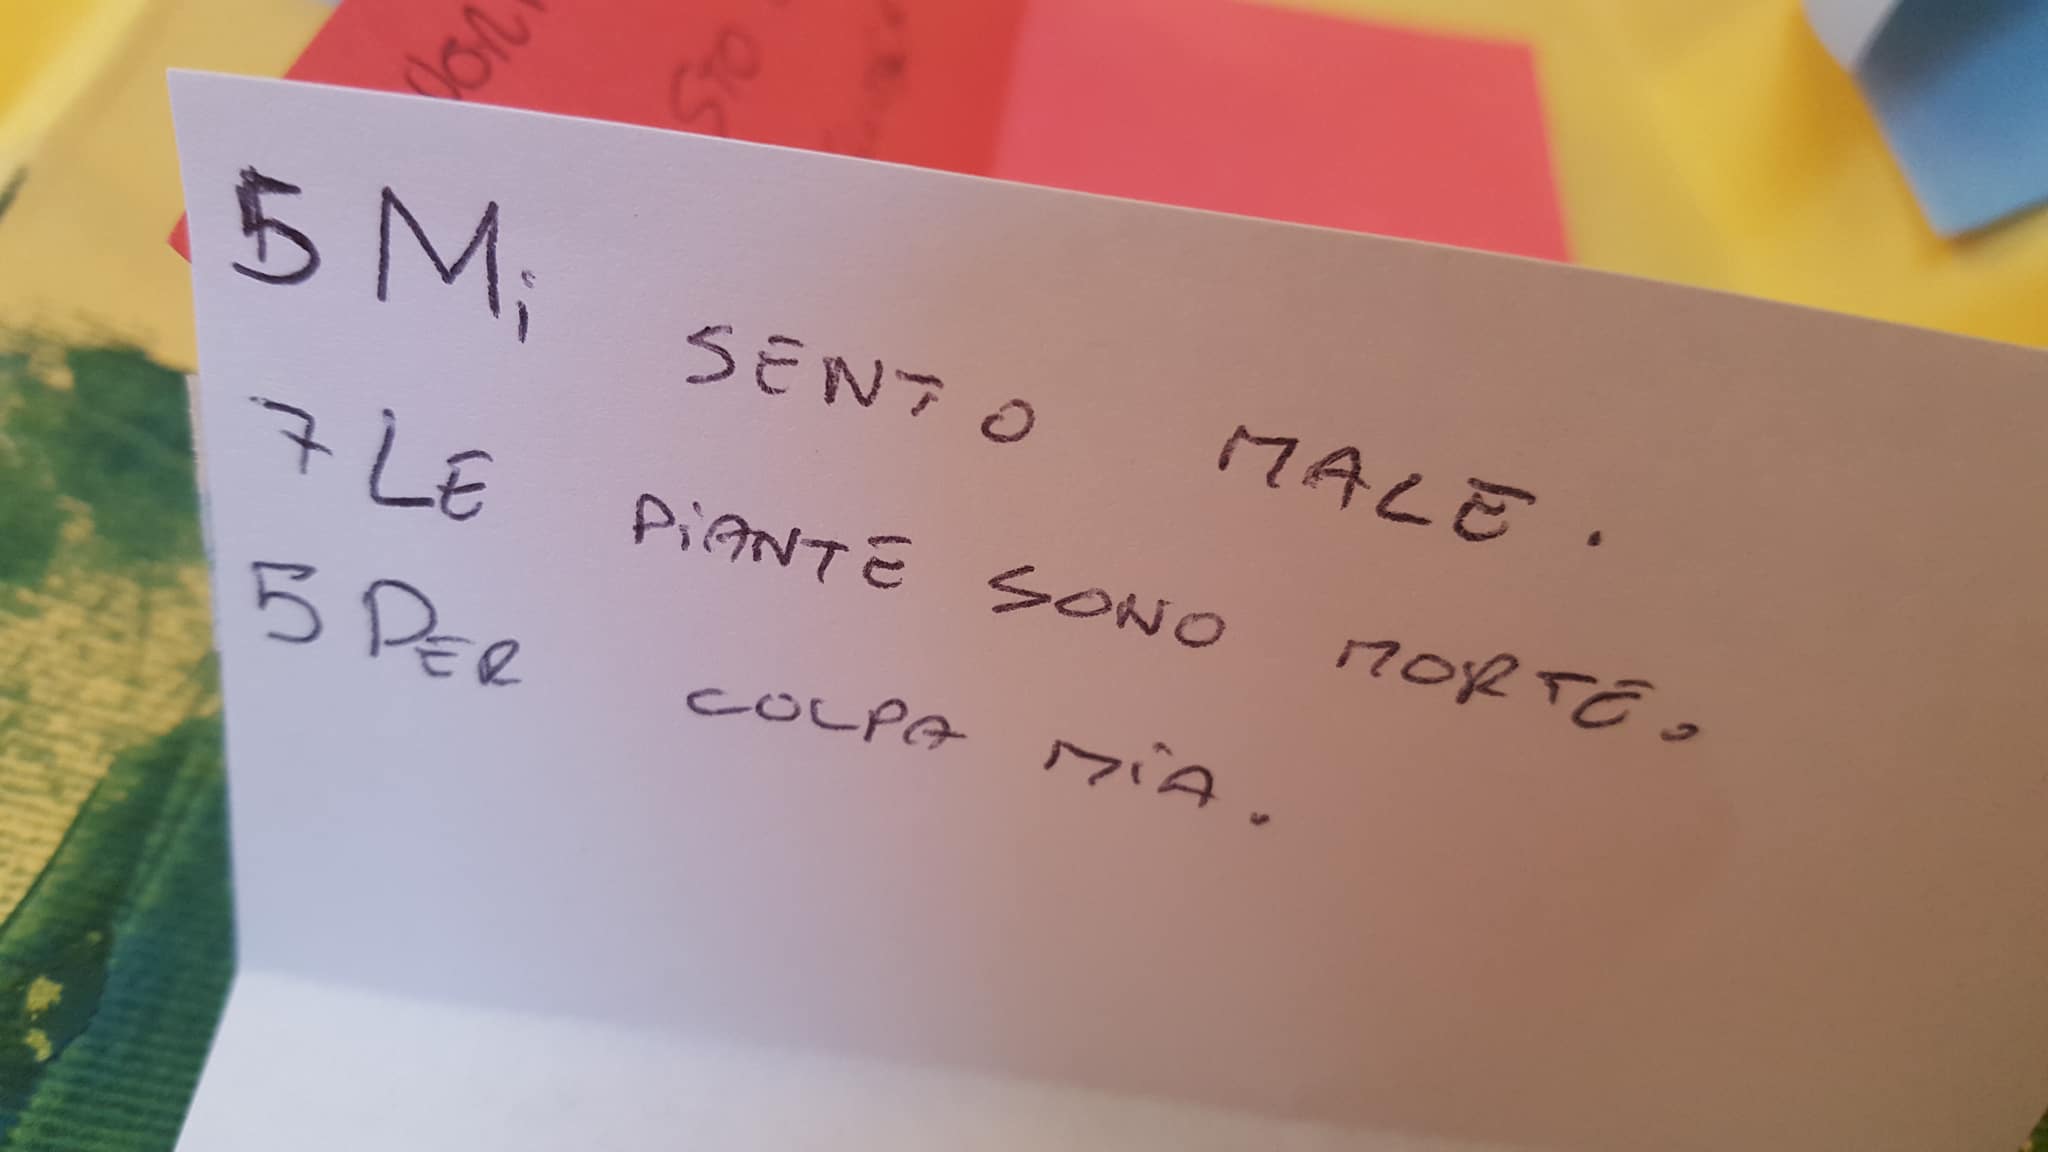 STO
5 Mi SENTO MALE.
7 LE PiANTE SONO MORTE.
5 PER COLPA MiA.